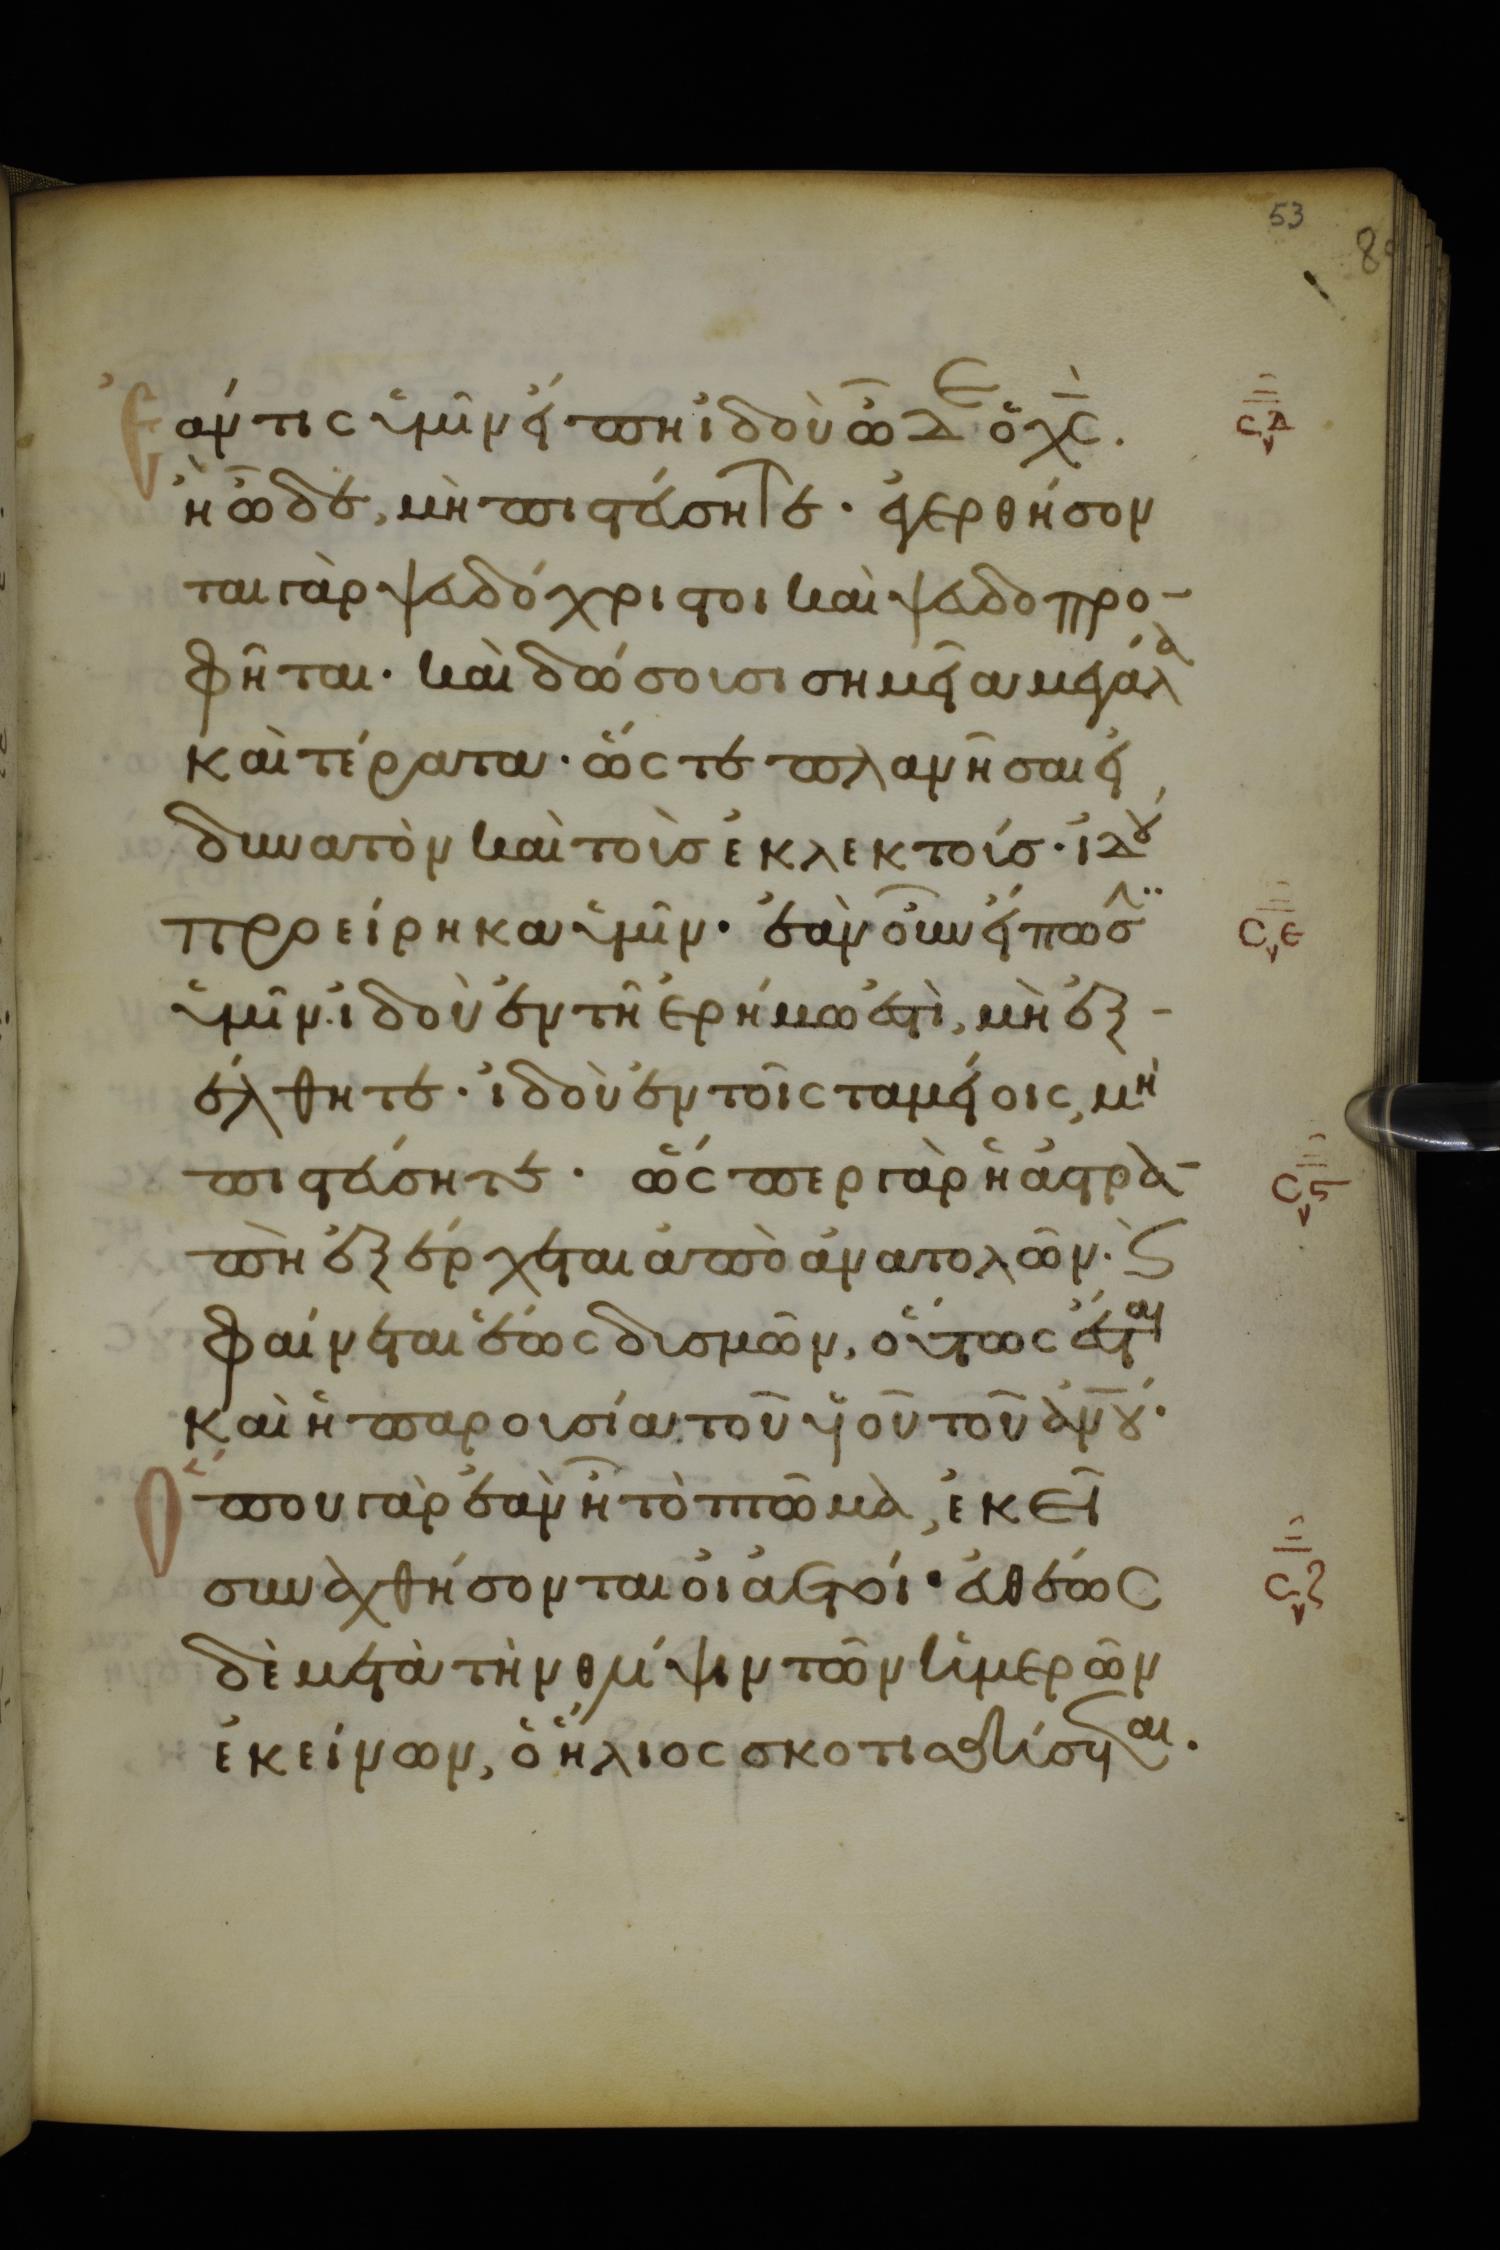 53
8
ἐάν τις ὑμῖν εἴπη ἰδοὺ ὧδε ὁ χς.
ἢ ὧδε, μὴ πιστεύσητε· ἐγερθήσον
ται γὰρ ψευδόχριστοι καὶ ψευδοπρο-
φῆται· καὶ δώσουσι σημεῖα μεγάλα
καὶ τέρατα· ὥστε πλανῆσαι εἰ
δυνατὸν καὶ τοὺσ ἐκλεκτούσ· ἰδού
προείρηκα ὑμῖν· ἐὰν οὖν εἴπωσιν
ὑμῖν ἰδοὺ ἐν τῆ ἐρήμω ἐστὶ, μὴ ἐξ-
έλθητε· ἰδοὺ ἐν τοῖς ταμείοις, μὴ
πιστεύσητε· ὥσπερ γὰρ ἡ ἀστρα-
πὴ ἐξέρχεται ἀπὸ ἀνατολῶν· ϗ
φαίνεται ἕως δυσμῶν, οὕτως ἔσται
καὶ ἡ παρουσία τοῦ ὑοῦ τοῦ ἀνου·
ὅπου γὰρ ἐὰν ἦ τὸ πτῶμα, ἐκεῖ
συναχθήσονται οἱ ἀετοί· εὐθέως
δὲ μετὰ τὴν θλίψιν τῶν ἡμερῶν
ἐκείνων, ὁ ἥλιος σκοτισθήσεται.
σν δ
σν ε
σν ϛ
σν ζ